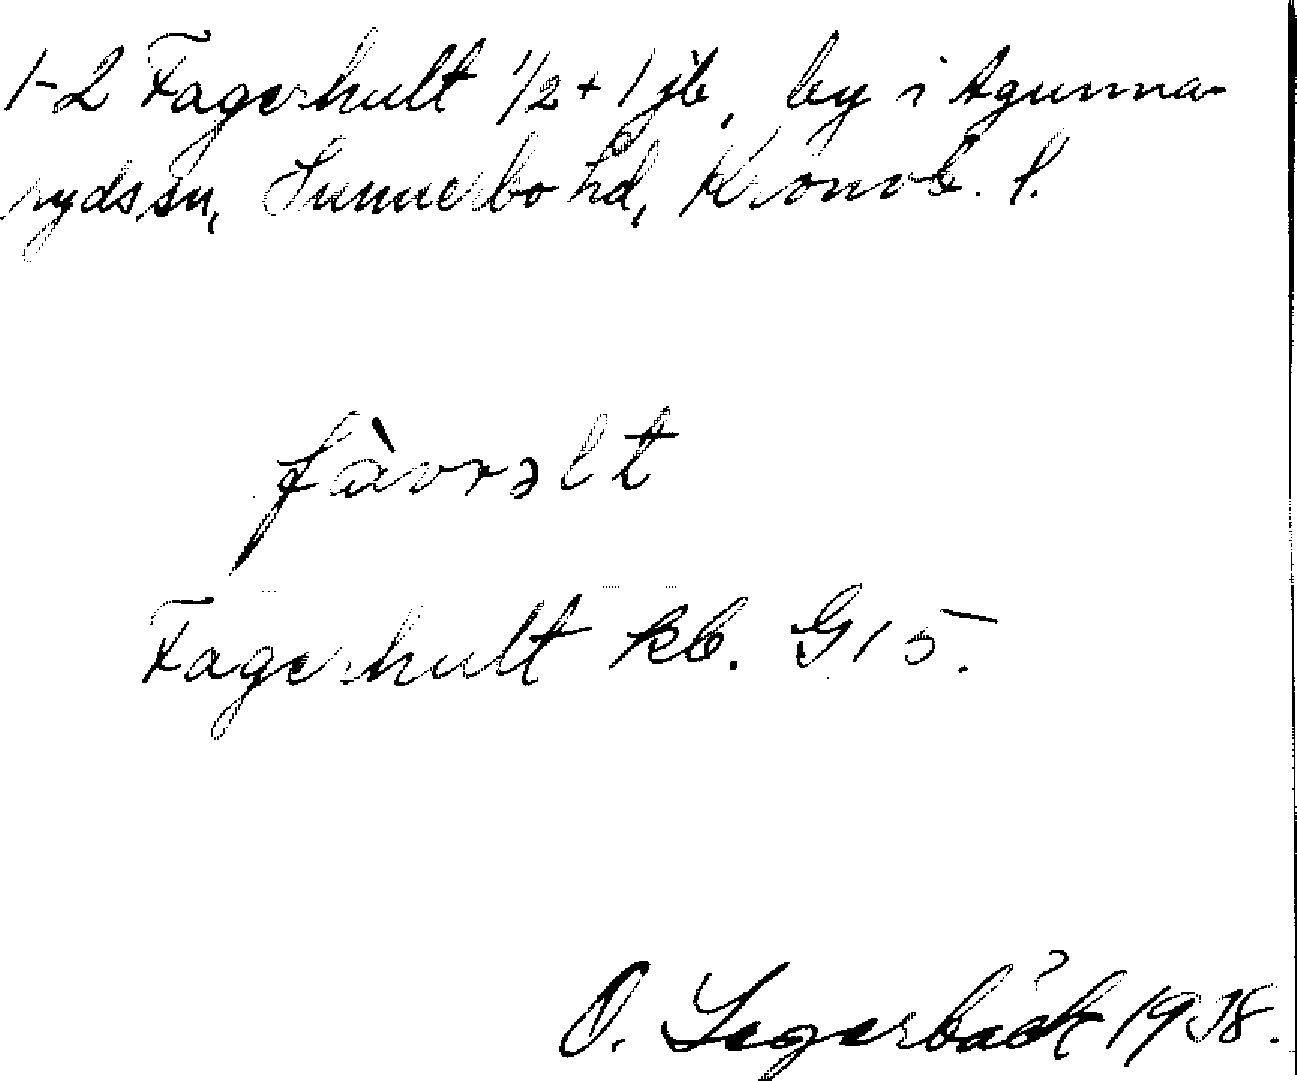 1-2 Fagerhult 1/2 + 1 jb, by i Agunna-
ryds sn, Sunnerbo hd, Kronob. l.
fàvrəlt
Fagerhult kb. G 15.
O. Segerbäck 1938.